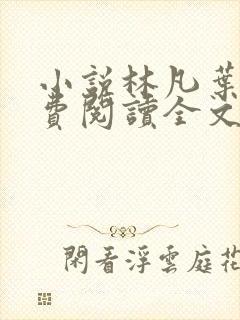 小說林凡葉
費閱讀全文
閑看浮雲庭花